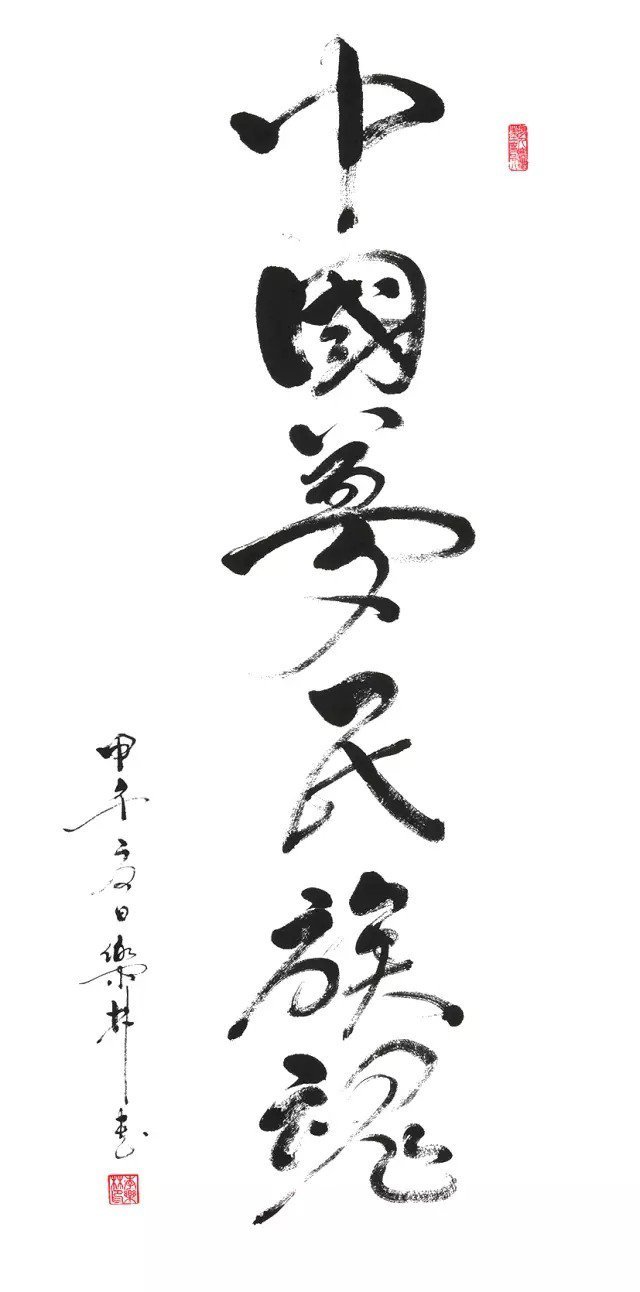 中國夢民族魂
甲午夏日樂林書